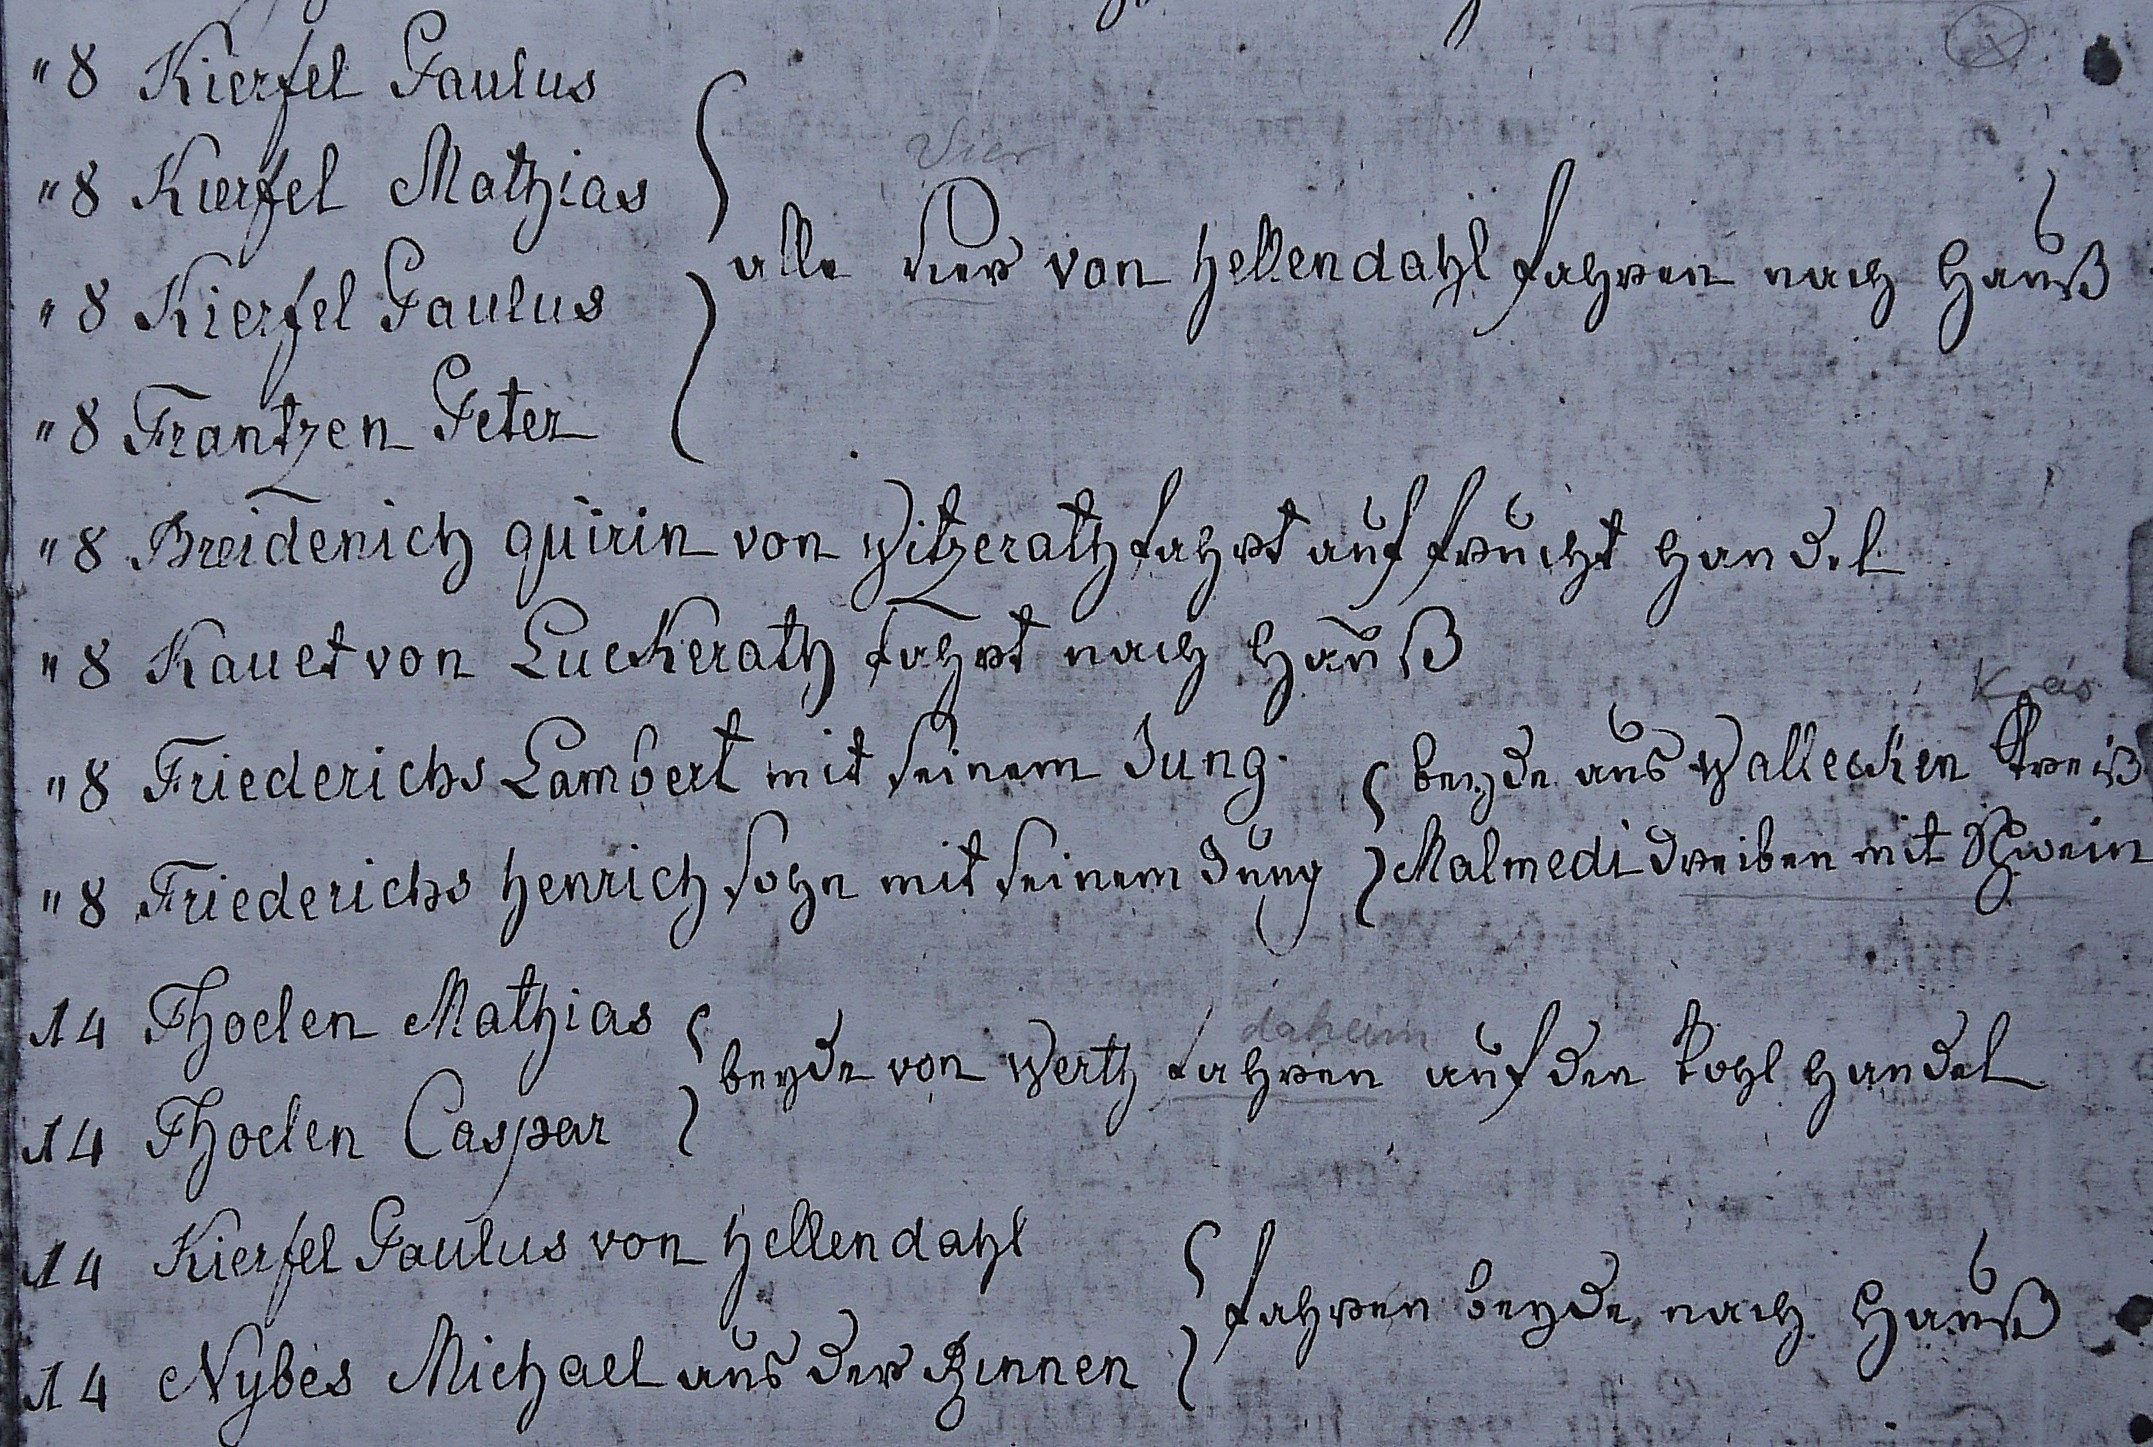 " 8 Kierfel Paulus
Vier
" 8 Kierfel Mathias
alle vier von Hellendahl fahren nach Hauß
" 8 Kierfel Paulus
" 8 Frantzen Peter
" 8 Breidenich quirin von Witzerath fahrt auf frucht handel
" 8 Kauet von Luckerath fahrt nach Hauß
" 8 Friederichs Lambert mit seinem Jung. beyde aus Wallecken Kreiß
" 8 Friederichs Henrich sohn mit seinem Jung Malmedi treiben mit Schwein
14 Thoelen Mathias
daheim
beyde von Werth fahren auf den kohl handel
14 Thoelen Caspar
14 Kierfel Paulus von Hellendahl
fahren beyde nach Hauß
14 Nybes Michael aus der Binnen